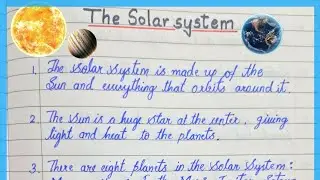 The Solar system
1. The Solar System is made up of the
Sun and everything that orbits around it.
2. The Sun is a huge star at the center, giving
light and heat to the planets.
3. There are eight planets in the Solar System: